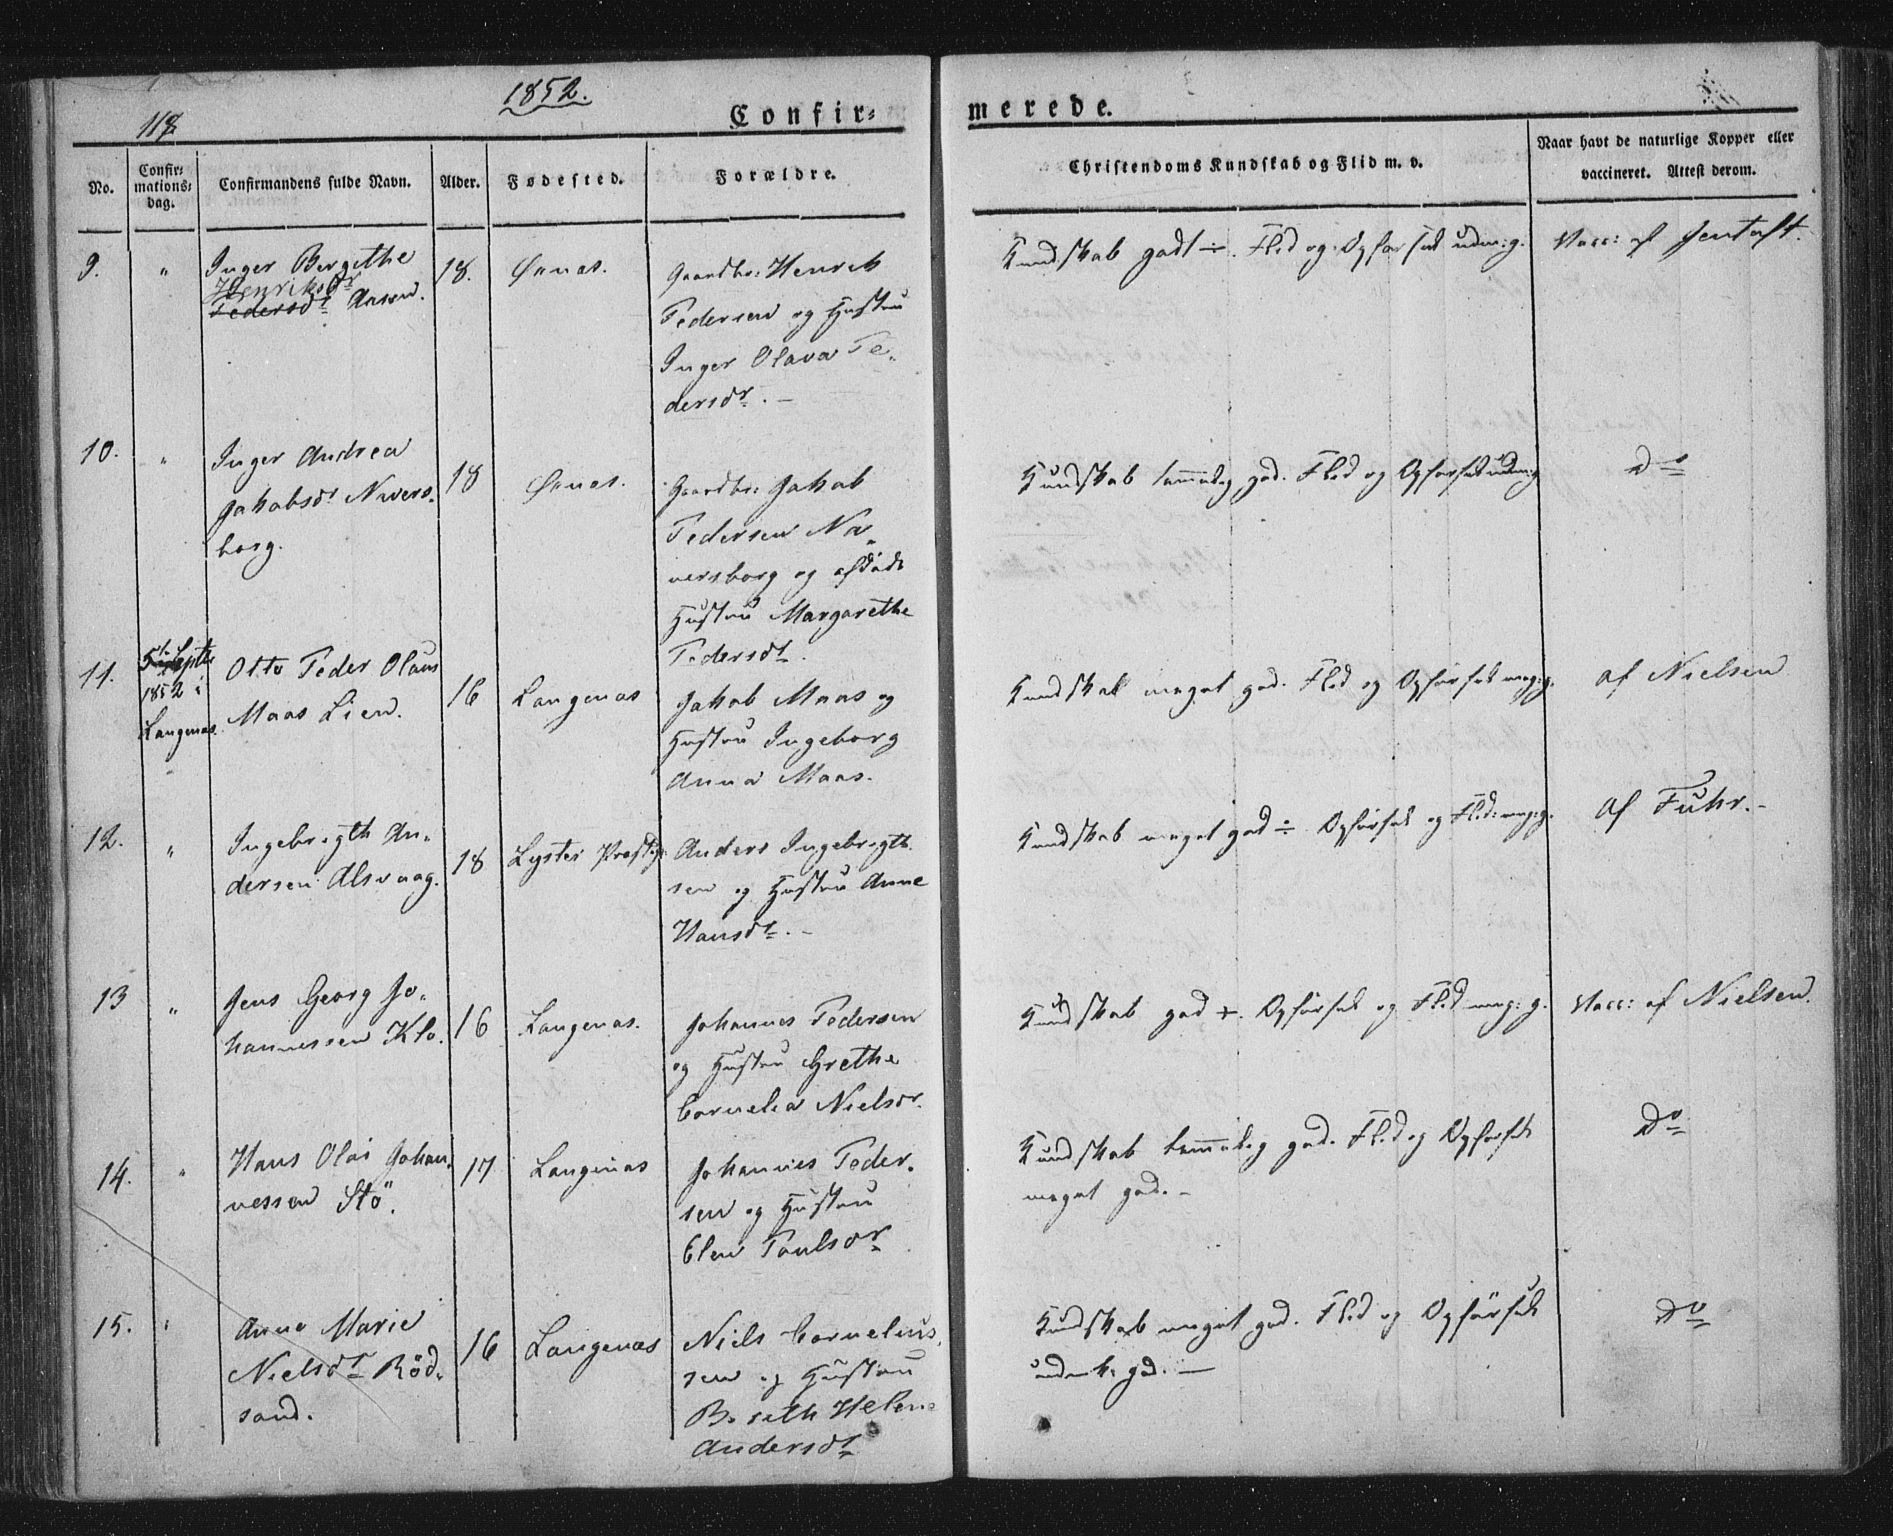 1852.
118
Confir=
merede.
No.
Confir=
mations=
dag.
Confirmandens fulde Navn.
Alder.
Fødested.
Forældre.
Christendoms Kundskab og Flid m. v.
Naar havt de naturlige Kopper eller
vaccineret. Attest derom.
9.
"
Inger Bergithe
Henriksdr
Pedersdt Aasen.
18.
Øxnes.
Gaardbr: Henrik
Pedersen og Hustru
Inger Olava Pe-
dersdr. -
Kundskab godt ÷. Flid og Opførsel udm: g.
Vacc: af Jentoft.
10.
"
Inger Andrea
Jakobsdt Navers-
borg.
18
Øxnes.
Gaardbr: Jakob
Pedersen Na-
versborg og afdöde
Hustru Margarethe
Pedersdt.
Kundskab temmelig god. Flid og Opførsel udm: g
Do
11.
5te Septbr
1852 i
Langenæs
Otto Peder Olaus
Maas Lien.
16
Langenæs
Jakob Maas og
Hustru Ingeborg
Anna Maas.
Kundskab meget god. Flid og Opførsel meg: g.
af Nielsen
12.
"
Ingebrigth An-
dersen Alsvaag.
18
Lyster Præstgj:
Anders Ingebrigth-
sen og Hustru Anne
Hansdt. -
Kundskab meget god ÷ Opførsel og Flid meg: g.
af Fuhr. -
13
"
Jens Georg Jo-
hannessen Klo.
16
Langenæs.
Johannes Pedersen
og Hustru Grethe
Cornelia Nielsdr.
Kundskab god +. Opførsel og Flid meg: g.
Vacc: af Nielsen.
14.
"
Hans Olai Johan-
nessen Stö.
17
Langenæs
Johannes Peder-
sen og Hustru
Elen Paulsdr
Kundskab temmelig god. Flid og Opførsel
meget god. -
Do
15.
"
Anne Marie
Nielsdt Röd-
sand.
16
Langenæs
Niels Cornelius-
sen og Hustru
Bereth Helene
Andersdt
Kundskab meget god. Flid og Opførsel
udm: gd. -
Do